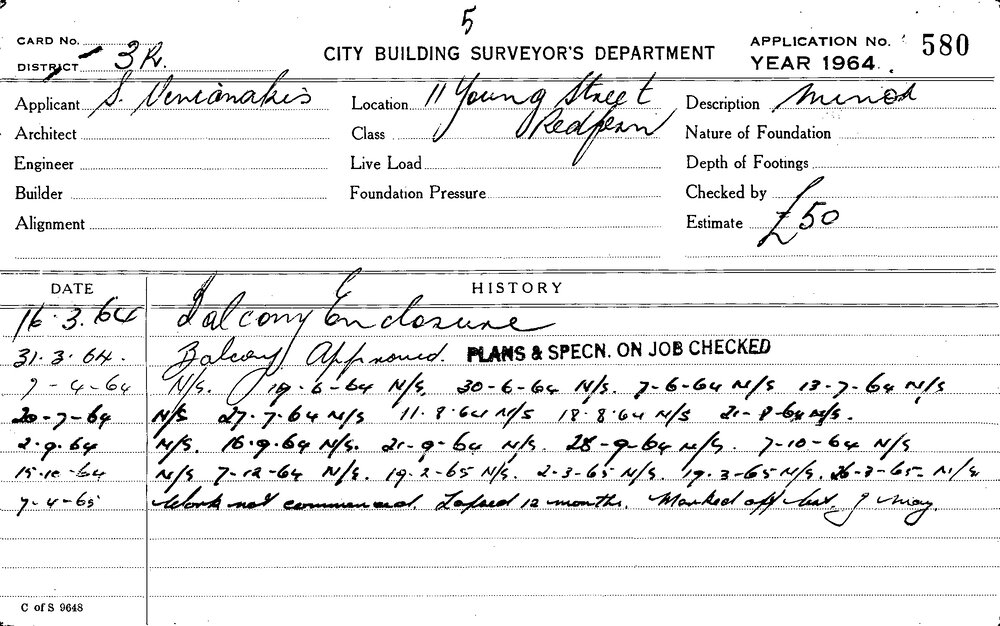 5
CARD No.
DISTRICT 3R.
CITY BUILDING SURVEYOR'S DEPARTMENT
APPLICATION No. 580
YEAR 1964.
Applicant S. Venianakis Location 11 Young Street Description Minor
Architect Class Redfern Nature of Foundation
Engineer Live Load Depth of Footings
Builder Foundation Pressure Checked by
Alignment Estimate £50
DATE HISTORY
16.3.64 Balcony Enclosure
31.3.64. Balcony Approved. PLANS & SPECN. ON JOB CHECKED
7-4-64 N/S. 19-6-64 N/S. 30-6-64 N/S. 7-6-64 N/S 13-7-64 N/S
20-7-64 N/S 27.7.64 N/S 11.8.64 N/S 18.8.64 N/S 21-8-64 N/S.
2.9.64 N/S. 16.9.64 N/S. 21-9-64 N/S. 28-9-64 N/S. 7-10-64 N/S
15-10-64 N/S 7-12-64 N/S. 19-2-65 N/S. 2-3-65 N/S. 19.3-65 N/S. 26-3-65- N/S.
7-4-65 Work not commenced. Lapsed 12 months. Marked off list. J May.
C of S 9648